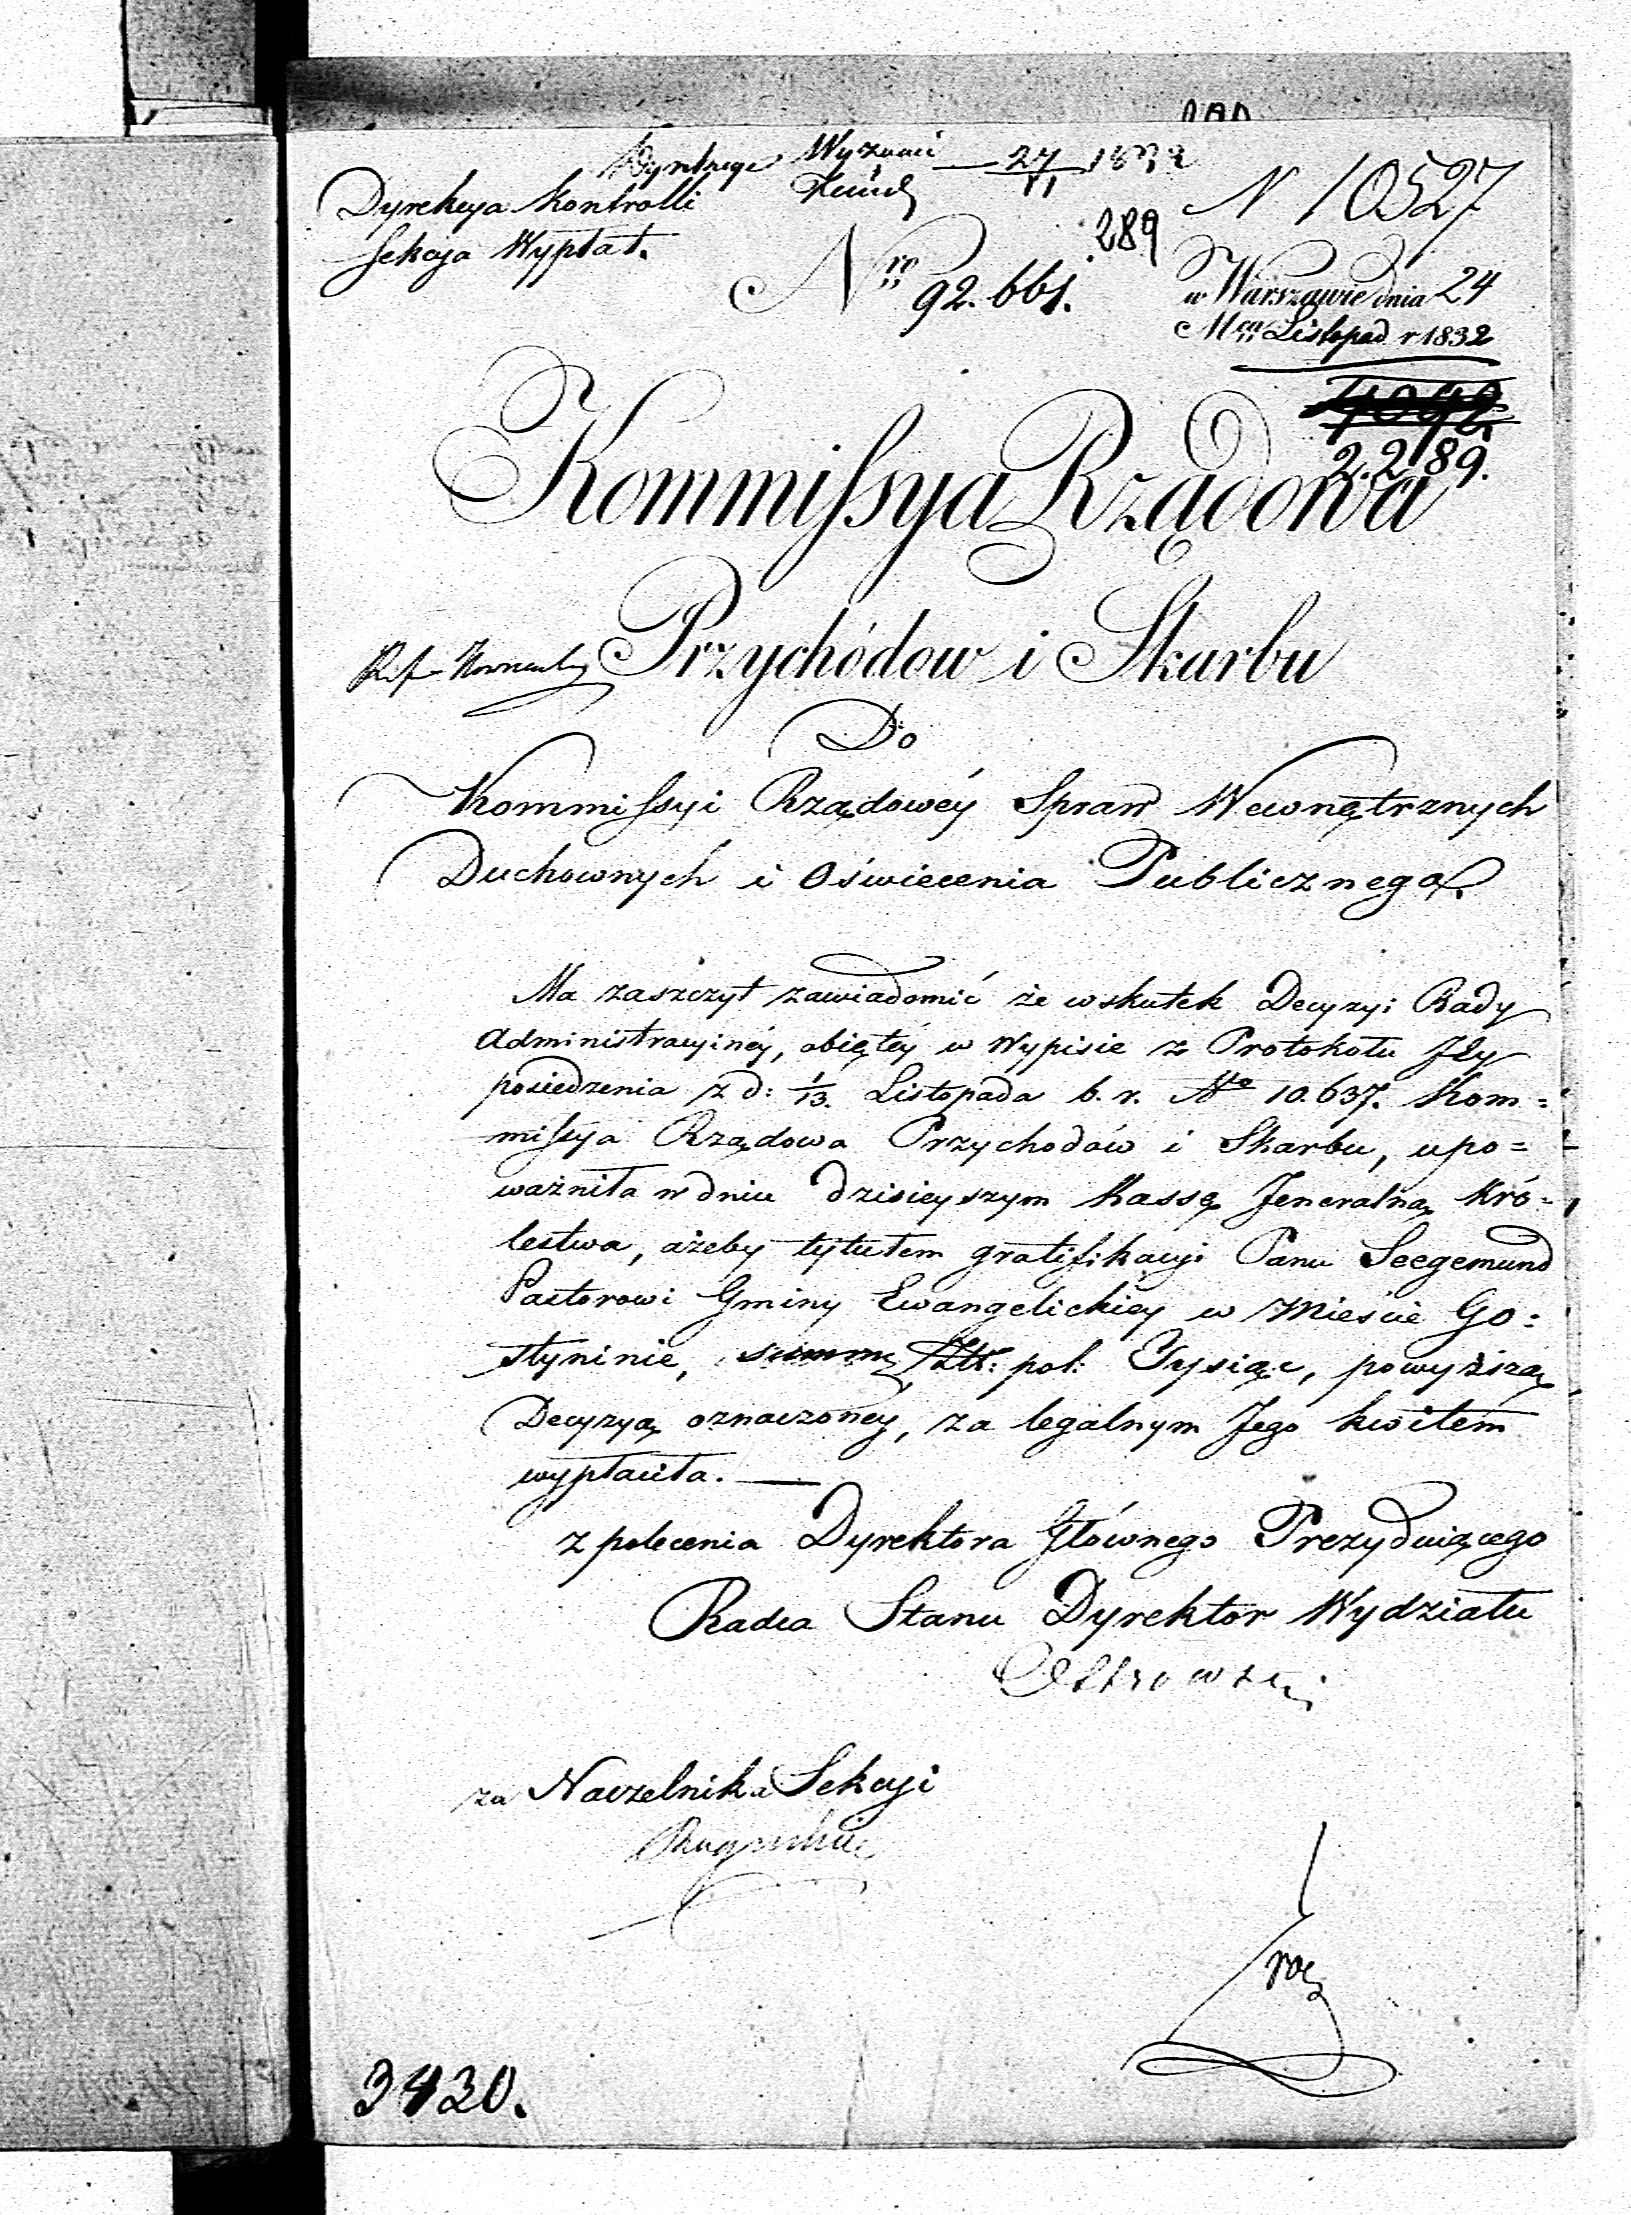 Wyznań — 27/XI 1832
N 10527
Dyrekcya Kontrolli
Sekcya Wypłat.
289
Nro 92.661.
w Warszawie dnia 24
Mca Listopad r 1832
2.289.
Kommissya Rządowa
Przychodów i Skarbu
Do
Kommissyi Rządowéy Spraw Wewnętrznych
Duchownych i Oświecenia Publicznego.
Ma zaszczyt zawiadomić że wskutek Decyzyi Rady
Administracyinéy, obiętéy w Wypisie z Protokołu Jéy
posiedzenia z d: 1/13. Listopada b. r. No 10.637. Kom=
missya Rządowa Przychodów i Skarbu, upo=
ważniła w dniu dzisieyszym Kassę Jeneralną Kró=
lestwa, ażeby tytułem gratifikacyi Panu Seegemund
Pastorowi Gminy Ewangelickiey w Mieście Go=
styninie, summę Złt: pol: Tysiąc, powyższą
Decyzyą oznaczoney, za legalnym Jego kwitem
wypłaciła. —
z polecenia Dyrektora Głównego Prezyduiącego
Radca Stanu Dyrektor Wydziału
Ostrowski
za Naczelnika Sekcyi
3430.